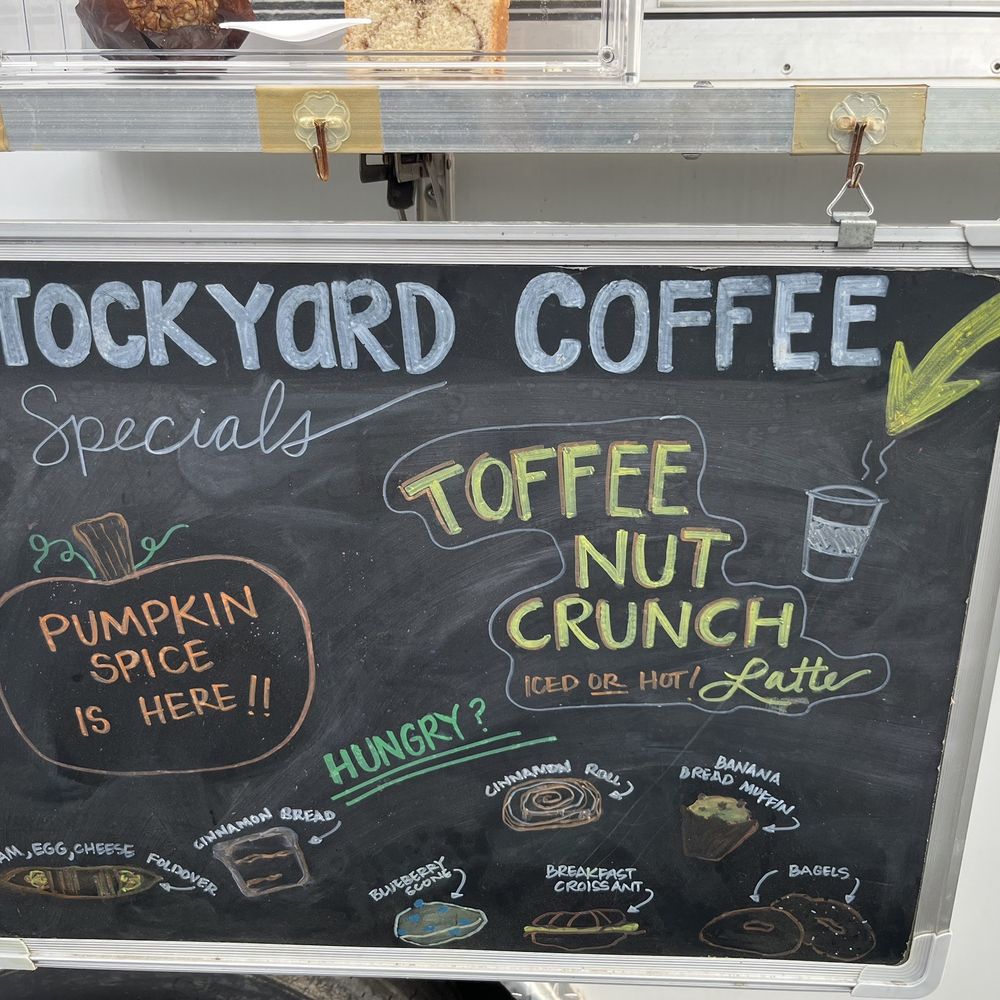 TOCKYARD COFFEE
Specials
TOFFEE
NUT
CRUNCH
ICED OR HOT! Latte
PUMPKIN
SPICE
IS HERE!!
HUNGRY?
AM, EGG, CHEESE
FOLDOVER
CINNAMON BREAD
CINNAMON ROLL
BANANA
BREAD MUFFIN
BLUEBERRY
SCONE
BREAKFAST
CROISSANT
BAGELS